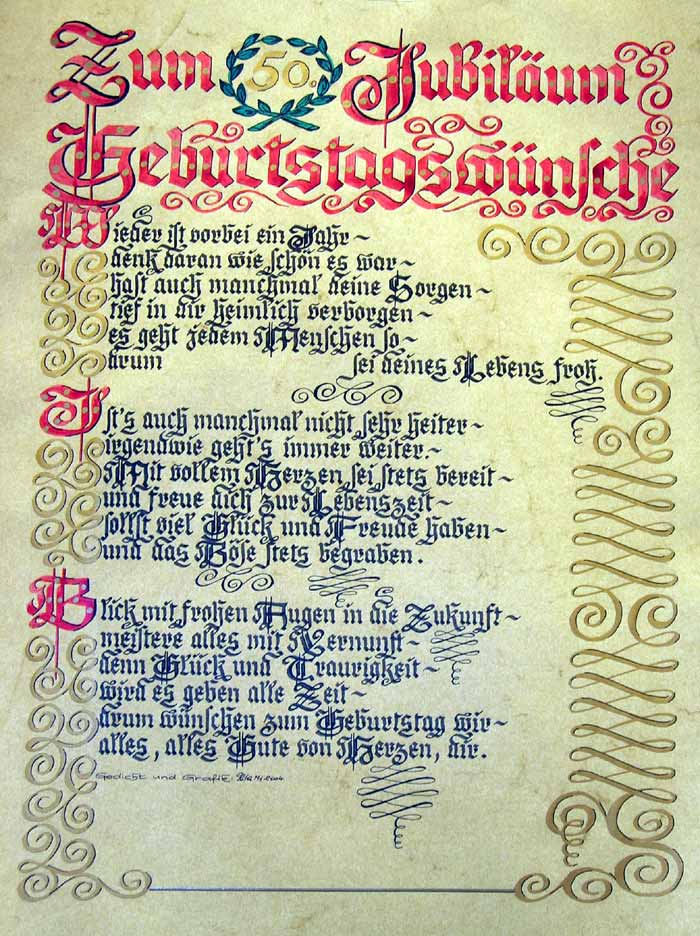 Zum 50. Jubiläum
Geburtstagswünsche
Wieder ist vorbei ein Jahr~
denk daran wie schön es war~
hast auch manchmal deine Sorgen~
tief in dir heimlich verborgen~
es geht jedem Menschen so~
drum sei deines Lebens froh.
Ist's auch manchmal nicht sehr heiter~
irgendwie geht's immer weiter~
Mit vollem Herzen sei stets bereit~
und freue dich zur Lebenszeit~
sollst viel Glück und Freude haben~
und das Böse stets begraben.
Blick mit frohen Augen in die Zukunft~
meistere alles mit Vernunft~
denn Glück und Traurigkeit~
wird es geben alle Zeit~
drum wünschen zum Geburtstag wir~
alles, alles Gute von Herzen, dir.
Gedicht und Grafik: